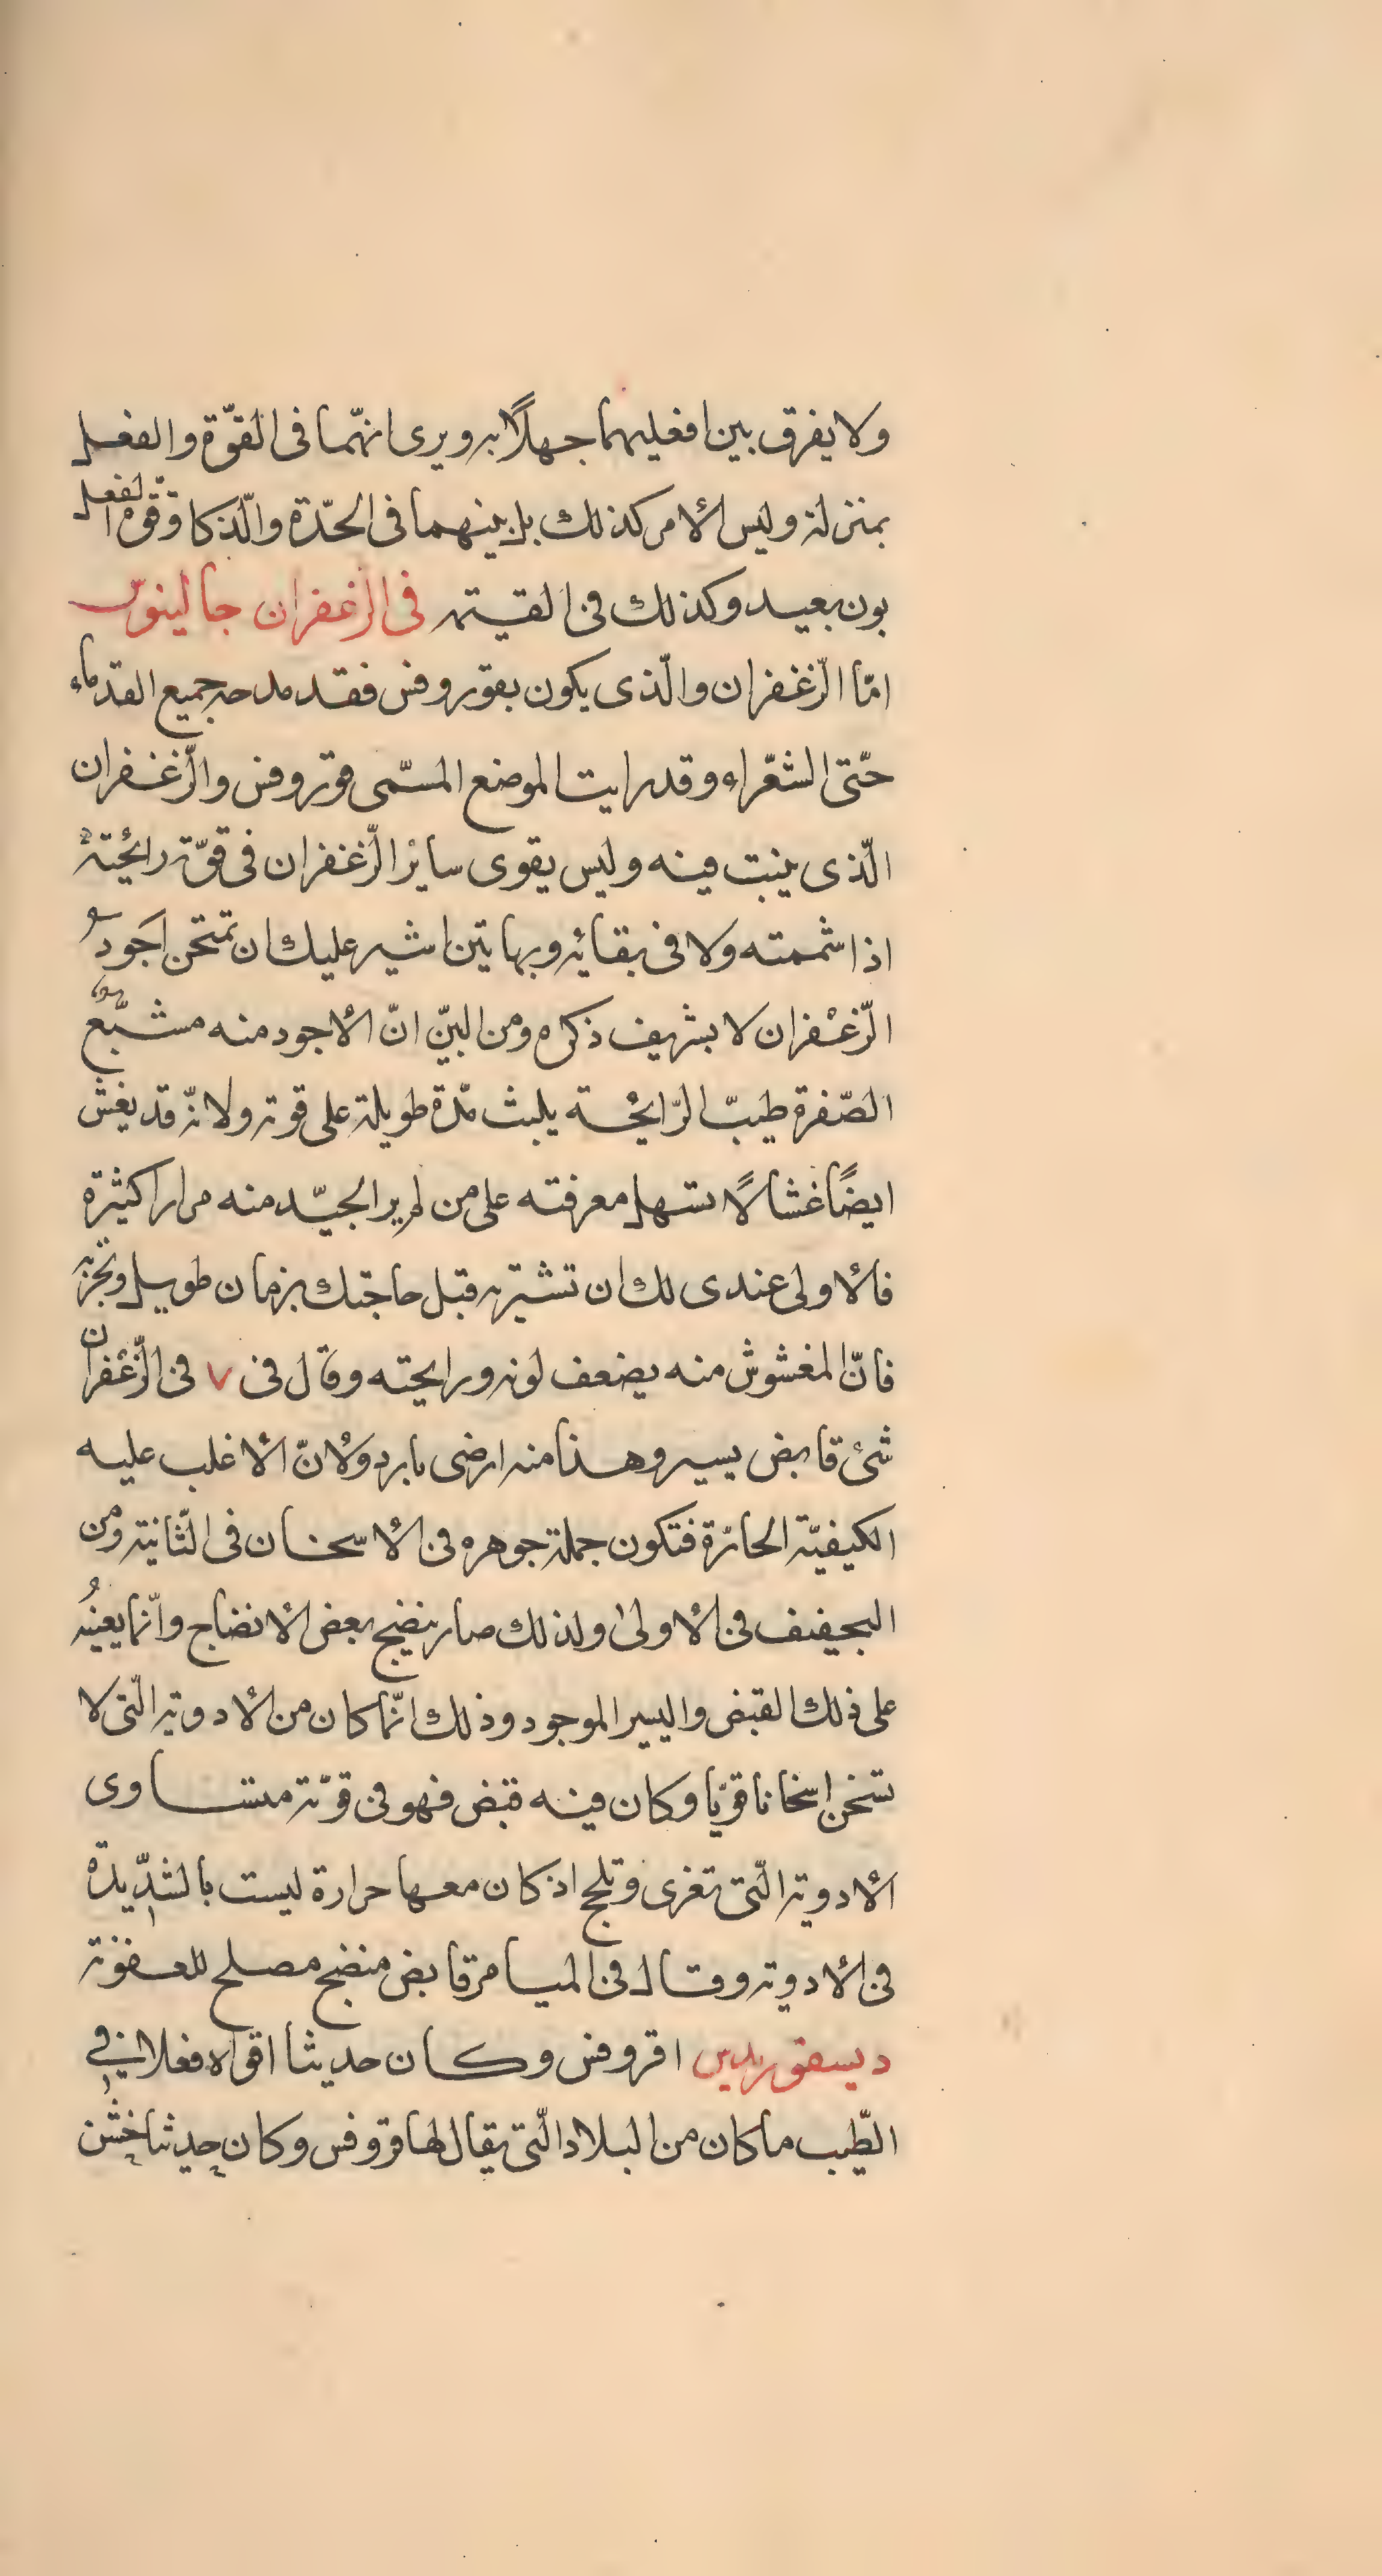 ولا يفرق بين افعليهما جهلاً به ويرى انهّما فى القوّة والفعل
بمنزلة وليس الأمر كذلك بل بينهما فى الحدّة والذّكا وقوّة الفعل
بون بعيد وكذلك فى القيمة فى الزعفران جالينوس
امّا الزّغفران والّذى يكون بقوروفس فقد مدحه جميع القدماء
حتّى الشعّراء وقد رايت الموضع المسّمى قوروفس والزّغفران
الّذى ينبت فيه وليس يقوى سائر الزّغفران فى قوّة رائحته
اذا شممته ولا فى بقائه وبهاتين اشير عليك ان تمتحن اجود
الزّعفران لا بشريف ذكره ومن البيّن انّ الأجود منه مشبّع
الصّفرة طيبّ الرّايحة يلبث مدّة طويلة على قوته ولانّه قد يغش
ايضًا غشا لاً تسهل معرفته على من لم ير الجيّد منه مرارا كثيرة
فالأولى عندى لك ان تشتريه قبل حاجتك بزمان طويل وتخزنه
فانّ المغشوش منه يضعف لونه ورايحته وقال فى ٧ فى الزّعْفران
شئ قابض يسير وهذا منه ارضى بارد ولأنّ الأغلب عليه
الكيفيّة الحارّة فتكون جملة جوهره فى الأسخان فى الثّانية ومن
التجفيف فى الأولى ولذلك صار ينضج بعض الأنضاج وانّما يعينُه
على ذلك القبض واليسير الموجود وذلك انّما كان من الأدوية الّتى لا
تسخن اسخانا قويّا وكان فيه قبض فهو فى قوّته متساوى
الأدوية الّتى تغرى وتلحج اذ كان معها حرارة ليست بالشدّيدة
فى الأدوية وقال فى الميامر قابض منضج مصلح للعفونة
ديسقوريدس اقروفس وكان حديثا اقواه فعلا فى
الطّيب ما كان من البلاد الّتى يقال لها قروفس وكان حديثا خشن